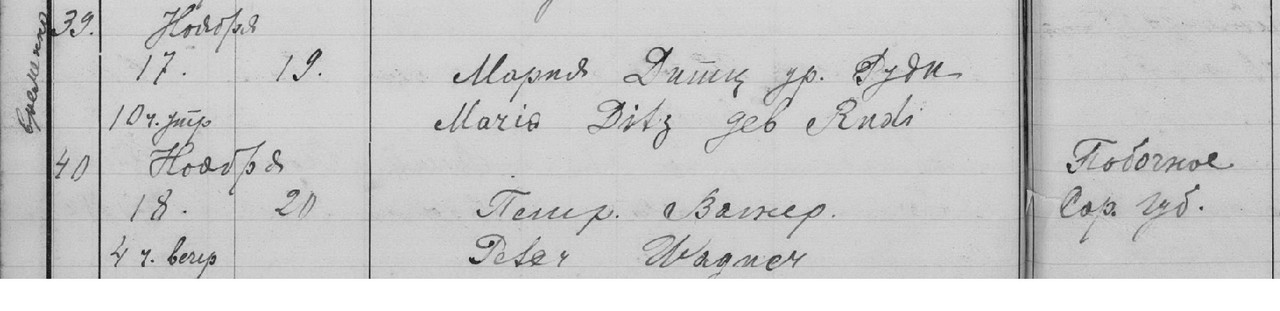 39. Ноября
17. 19. Мария Дитц ур. Руди
10 ч. утр Maria Ditz geb Rudi
40 Ноября Побочное
18. 20 Петр. Вагнер. Сар. губ.
4 ч. вечр Peter Wagner